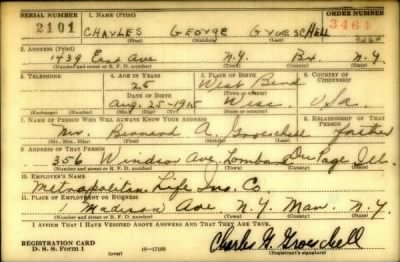 SERIAL NUMBER 1. NAME (Print) ORDER NUMBER
2101 CHARLES GEORGE GROESCHELL 3464
(First) (Middle) (Last)
2. ADDRESS (Print)
1439 East Ave N.Y. Bx. N.Y.
(Number and street or R. F. D. number) (Town) (County) (State)
3. TELEPHONE 4. AGE IN YEARS 5. PLACE OF BIRTH 6. COUNTRY OF CITIZENSHIP
25 West Bend
DATE OF BIRTH (Town or county)
Aug. 25-1915 Wisc. USA.
(Exchange) (Number) (Mo.) (Day) (Yr.) (State or country)
7. NAME OF PERSON WHO WILL ALWAYS KNOW YOUR ADDRESS 8. RELATIONSHIP OF THAT PERSON
Mr. Bernard A. Groeschell father
(Mr., Mrs., Miss) (First) (Middle) (Last)
9. ADDRESS OF THAT PERSON
356 Windsor Ave. Lombard DuPage Ill.
(Number and street or R. F. D. number) (Town) (County) (State)
10. EMPLOYER'S NAME
Metropolitan Life Ins. Co.
11. PLACE OF EMPLOYMENT OR BUSINESS
1 Madison Ave. N.Y. Man. N.Y.
(Number and street or R. F. D. number) (Town) (County) (State)
I AFFIRM THAT I HAVE VERIFIED ABOVE ANSWERS AND THAT THEY ARE TRUE.
REGISTRATION CARD
D. S. S. Form 1 (over) 16-17105 Charles G. Groeschell
(Registrant's signature)